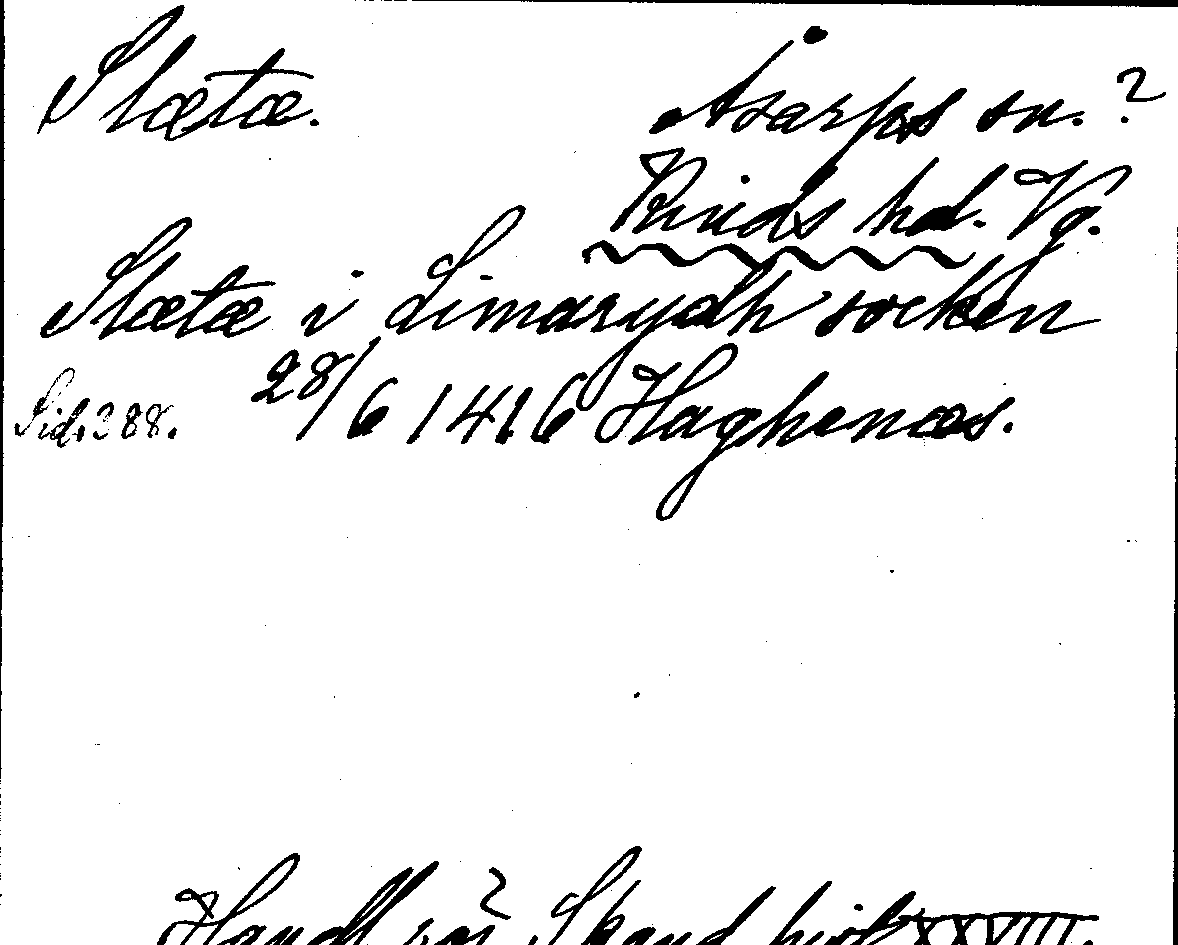 Slætæ.
Åsarps sn.?
Kinds hd. Vg.
Slætæ i Limarydh socken
Sid. 388. 28/6 1416 Haghenæs.
Handl rör Skand hist XXVIII.